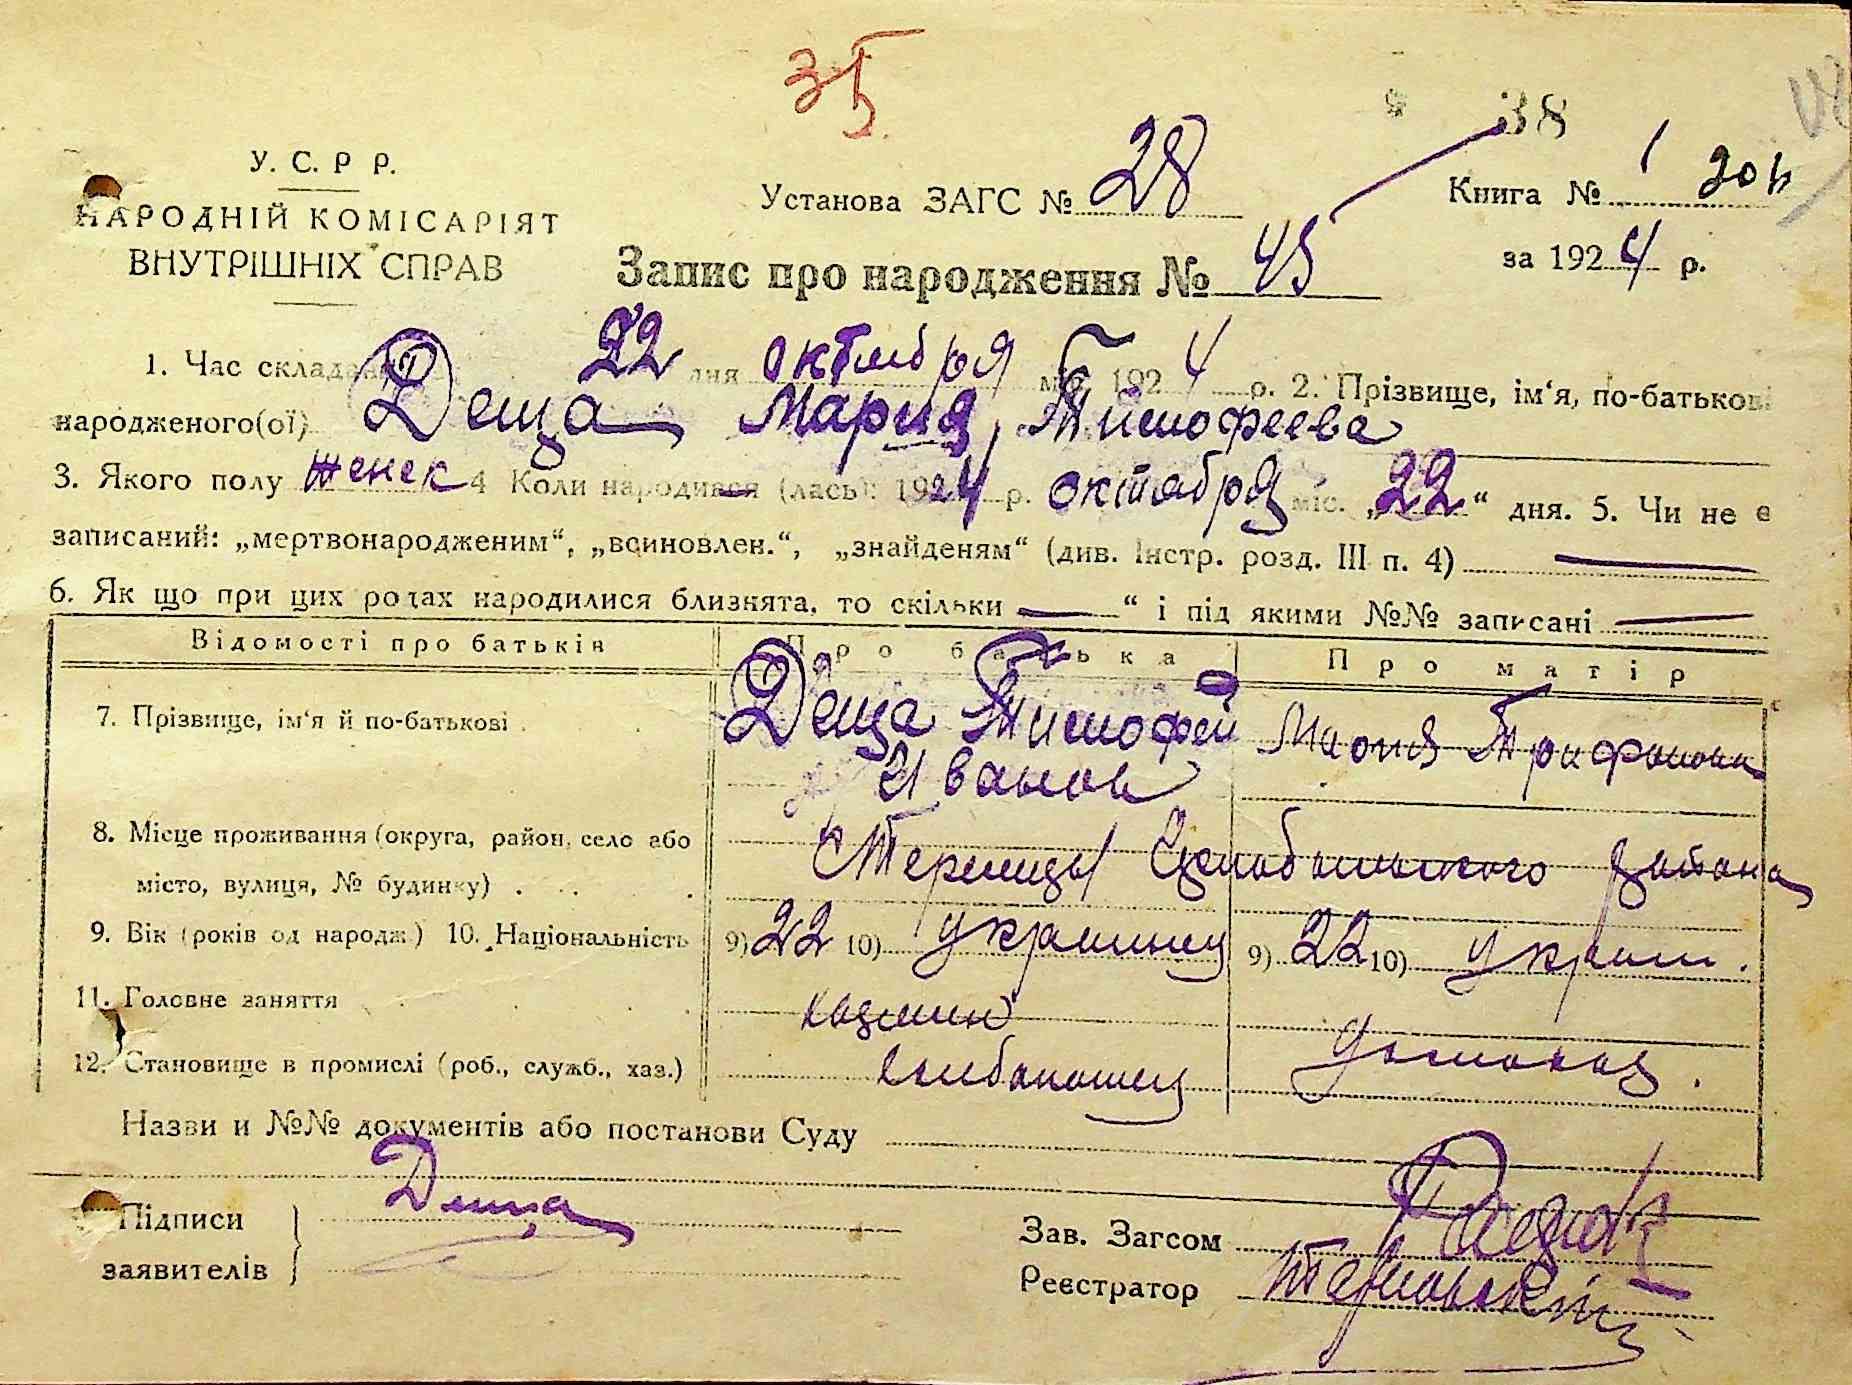 35
38
У. С. Р Р.
НАРОДНІЙ КОМІСАРІЯТ
ВНУТРІШНІХ СПРАВ
Установа ЗАГС № 28
Книга № 1
за 1924 р.
Запис про народження № 45
1. Час складання 22 дня октября міс. 1924 р. 2. Прізвище, ім‘я, по-батькові
народженого(ої) Деща Мария Тимофеева
3. Якого полу женск 4 Коли народився (лась): 1924 р. октября міс. „22“ дня. 5. Чи не є
записаний: „мертвонародженим“, „всиновлен.“, „знайденям“ (див. Інстр. розд. III п. 4)
6. Як що при цих родах народилися близнята, то скільки “ і під якими №№ записані
Відомості про батьків Про батька Про матір
7. Прізвище, ім‘я й по-батькові Деща Тимофей Иванов Мария Трифонова
8. Місце проживання (округа, район, село або
місто, вулиця, № будинку)
9. Вік (років од народж.) 10. Національність 9) 22 10) украинец 9) 22 10) украин.
11. Головне заняття
12. Становище в промислі (роб., служб., хаз.)
Назви и №№ документів або постанови Суду
Підписи
заявителів
Деща
Зав. Загсом
Реєстратор